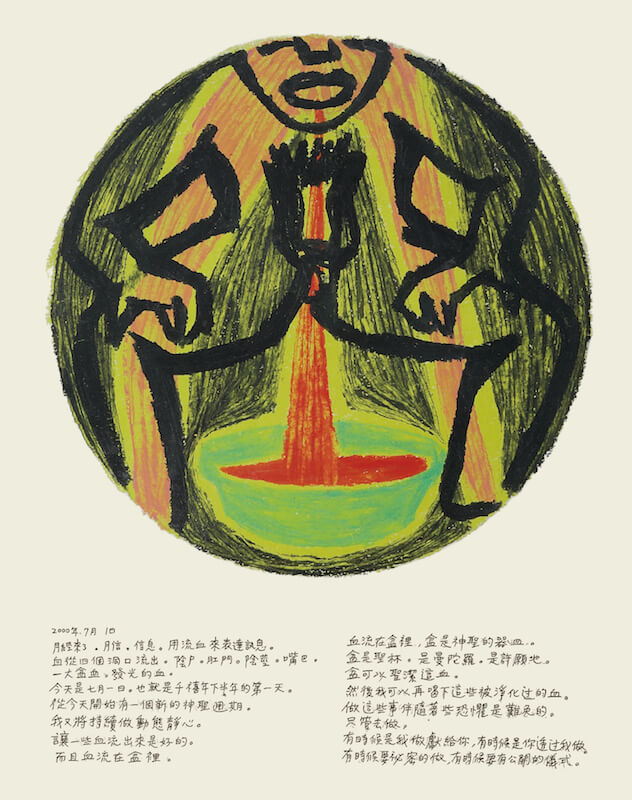 2000年.7月 1日
月經來了.月信.信息。用流血來表達訊息。
血從四個洞口流出。陰戶.肛門。陰莖。嘴巴。
一大盆血。發光的血。
今天是七月一日。也就是千禧年下半年的第一天。
從今天開始有一個新的神聖週期。
我又將持續做動態靜心。
讓一些血流出來是好的。
而且血流在盆裡。
血流在盆裡,盆是神聖的器皿。
盆是聖杯。是曼陀羅。是許願地。
盆可以聖潔這血。
然後我可以再喝下這些被淨化过的血。
做這些事伴隨著些恐懼是難免的。
只管去做。
有時候是我做獻給你,有時候是你透过我做。
有時候要秘密的做,有時候要有公開的儀式。